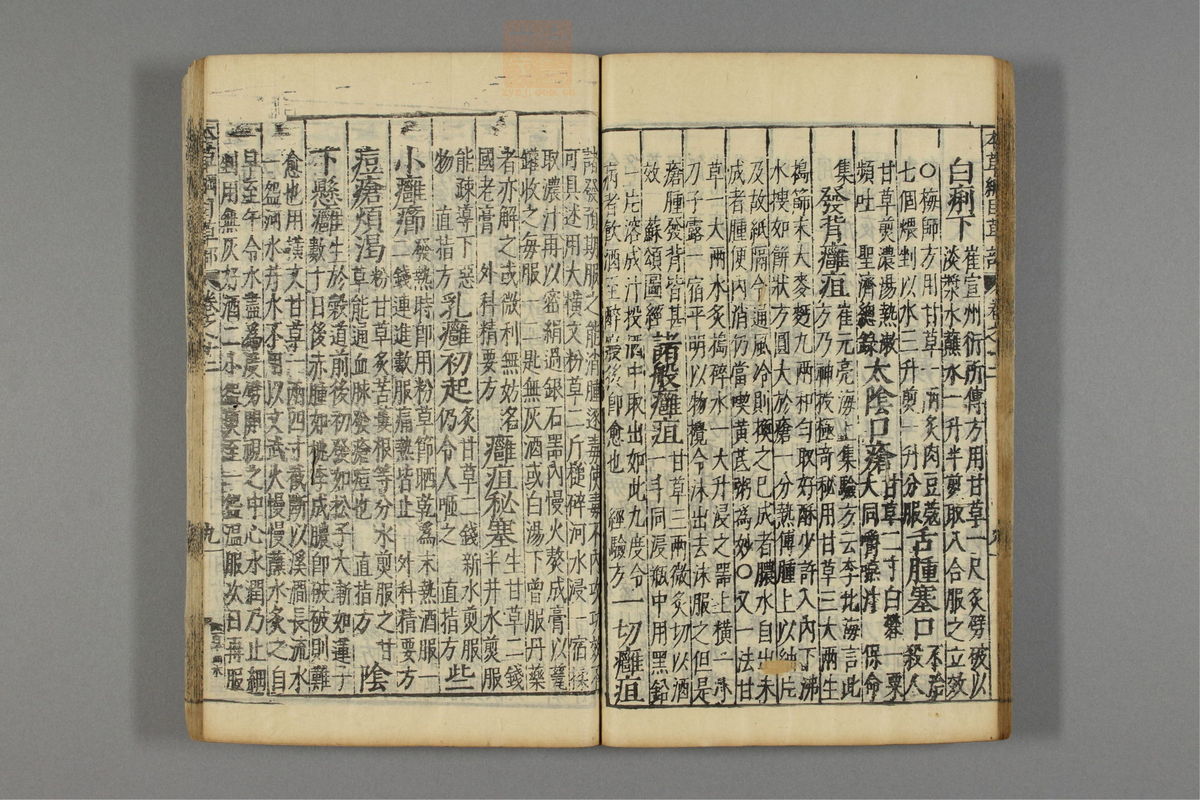 白痢下崔宣州衍所傳方用甘草一尺炙劈破以
淡漿水蘸水一升半煎取八合服之立效
○梅師方用甘草一兩炙肉豆蔻
七個煨剉以水三升煎一升分服舌腫塞口不治殺人
甘草煎濃湯熱漱
頻吐 聖濟總錄太陰口瘡甘草二寸白礬一粟大同嚼嚥汁 保命
集發背癰疽崔元亮海上集驗方云李北海言此
方乃神授極奇秘用甘草三大兩生
搗篩末大麥麪九兩和勻取好酥少許入內下沸
水搜如餅狀方圓大於瘡一分熱傅腫上以紬片
及故紙隔令通風冷則換之已成者膿水自出未
成者腫便內消仍當喫黃芪粥為妙○又一法甘
草一大兩水炙搗碎水一大升浸之器上橫一小
刀子露一宿平明以物攪令沫出去沫服之但是
瘡腫發背皆甚
效 蘇頌圖經諸般癰疽甘草三兩微炙切以酒
一斗同浸瓶中用黑鉛
一片溶成汁投酒中取出如此九度令
病者飲酒至醉寢後即愈也 經驗方一切癰疽
諸發預期服之能消腫逐毒使毒不內攻功效不
可具述用大橫文粉草二斤槌碎河水浸一宿揉
取濃汁再以密絹過銀石器內慢火熬成膏以瓷
罐收之每服一二匙無灰酒或白湯下曾服丹藥
者亦解之或微利無妨名
國老膏 外科精要方癰疽秘塞生甘草二錢
半井水煎服
能疎導下惡
物 直指方乳癰初起炙甘草二錢新水煎服
仍令人咂之 直指方些
小癰癤發熱時即用粉草節晒乾為末熱酒服一
二錢連進數服痛熱皆止 外科精要方
痘瘡煩渴粉甘草炙苦蔞根等分水煎服之甘
草能通血脉發瘡痘也 直指方陰
下懸癰生於穀道前後初發如松子大漸如蓮子
數十日後赤腫如桃李成膿即破破則難
愈也用橫文甘草一兩四寸截斷以溪澗長流水
一盌河水井水不用以文武火慢慢蘸水炙之自
早至午令水盡為度劈開視之中心水潤乃止細
剉用無灰好酒二小盌煎至一盌溫服次日再服